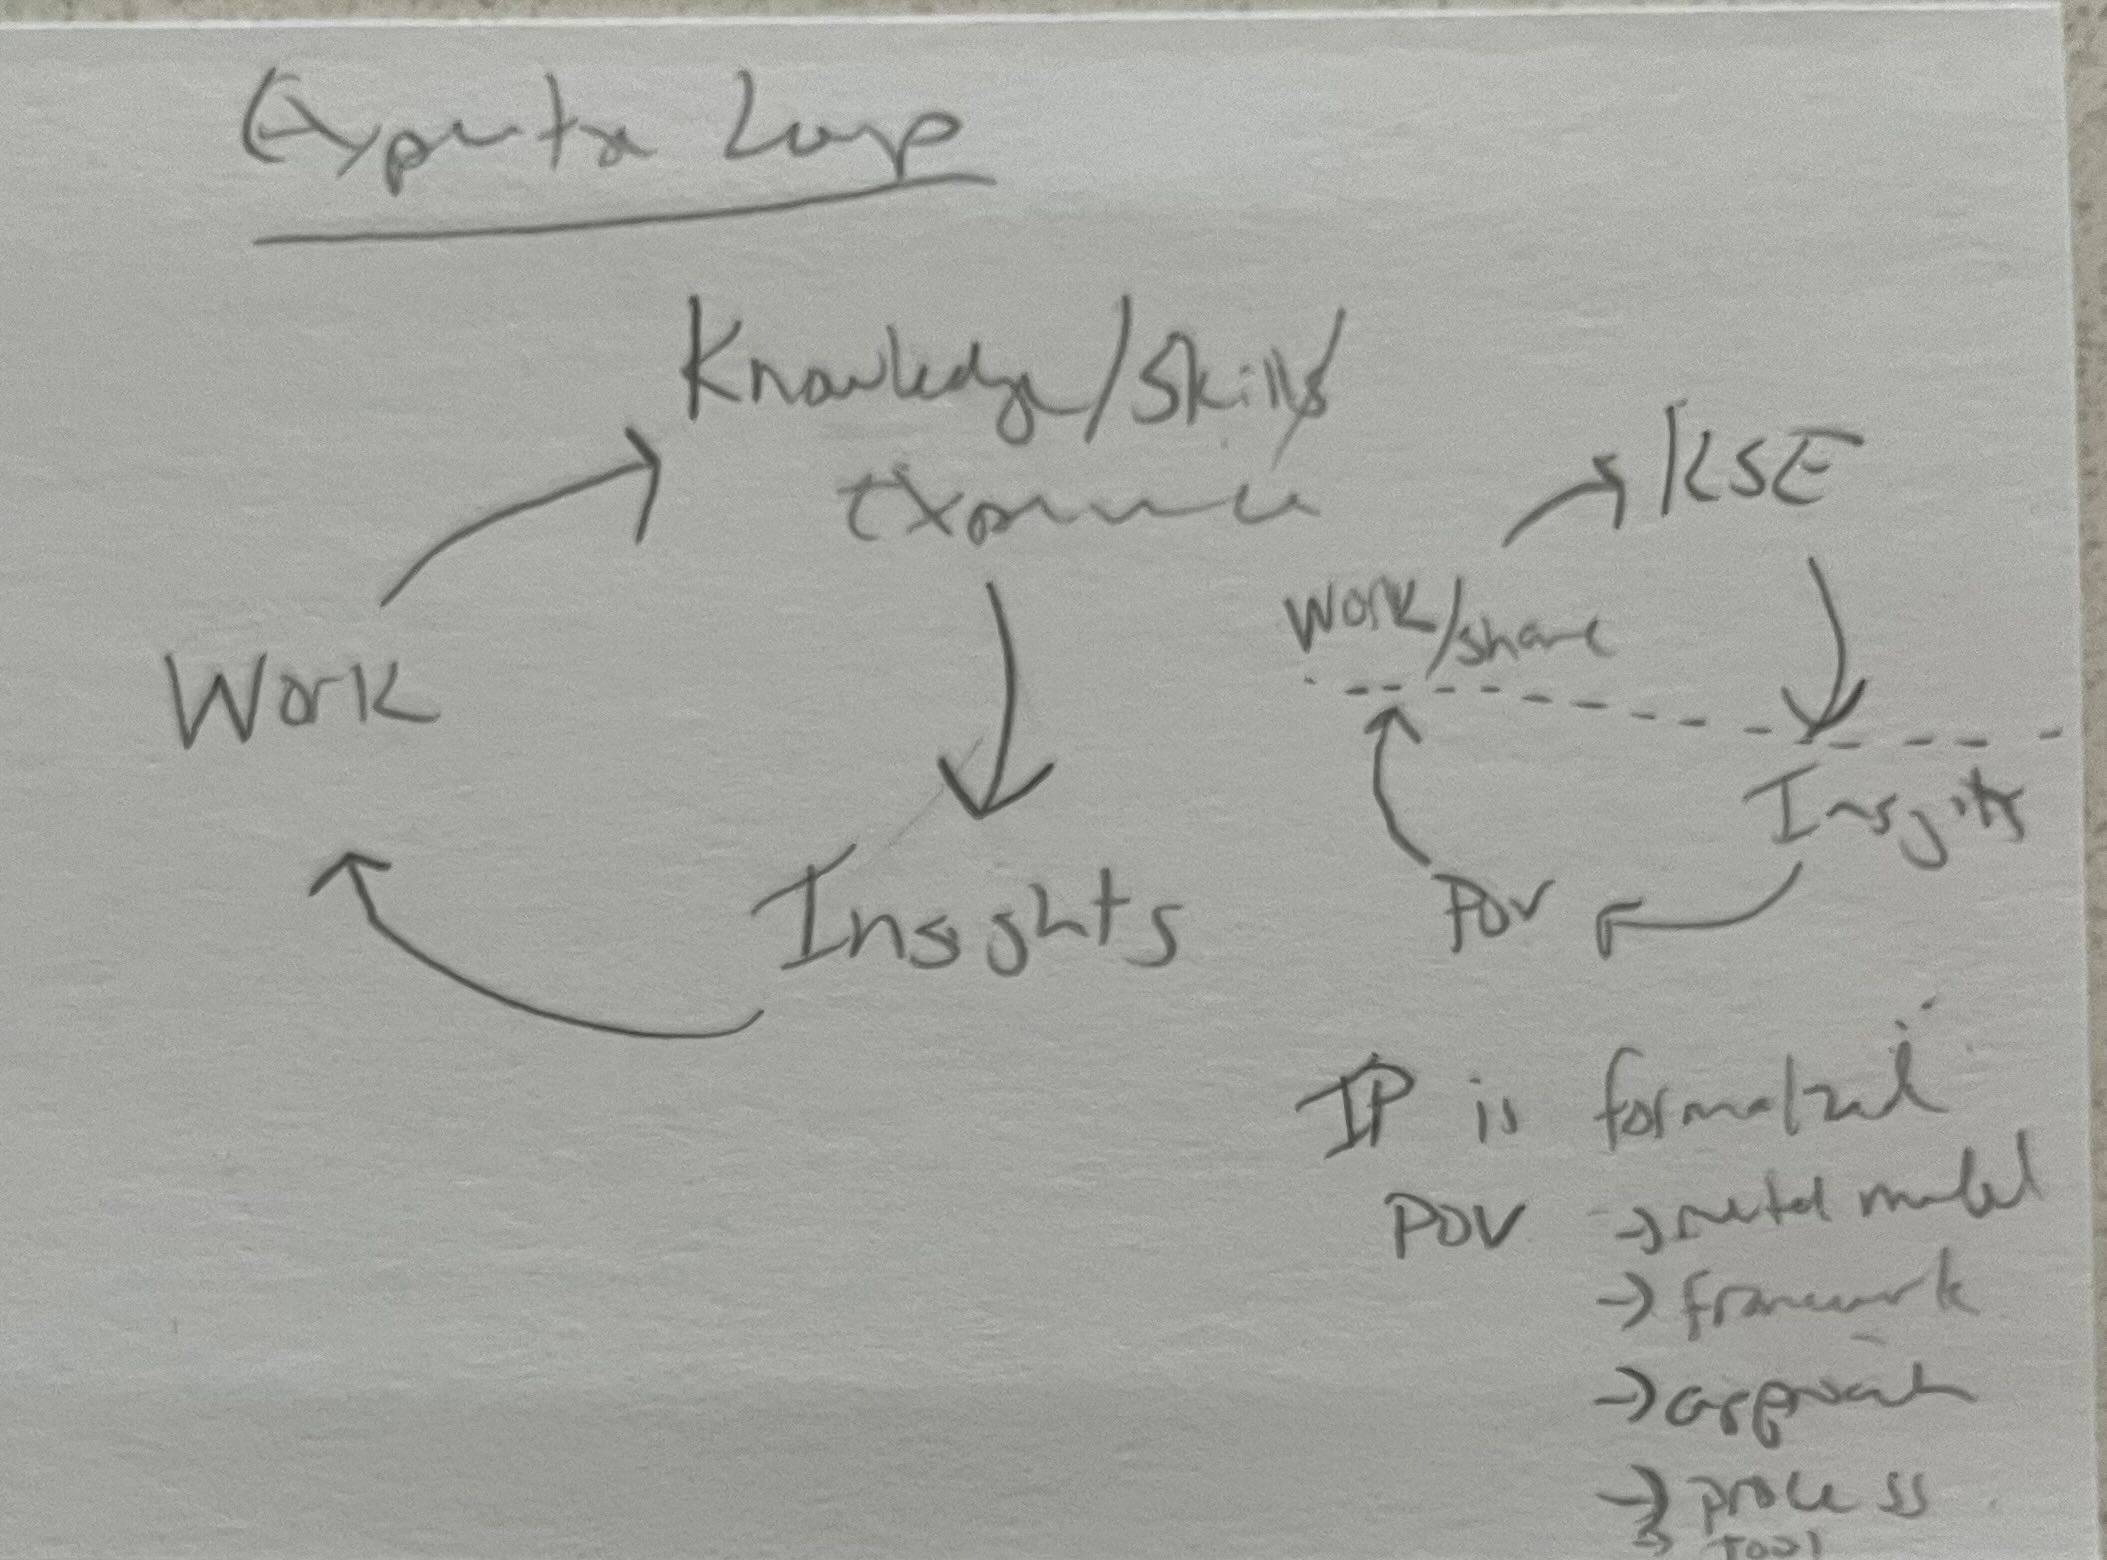 Expertise Loop
Knowledge/Skills/
Experience
Work
Insights
KSE
Work/share
Insights
POV
IP is formalized
POV → mental model
→ framework
→ approach
→ process
→ tool